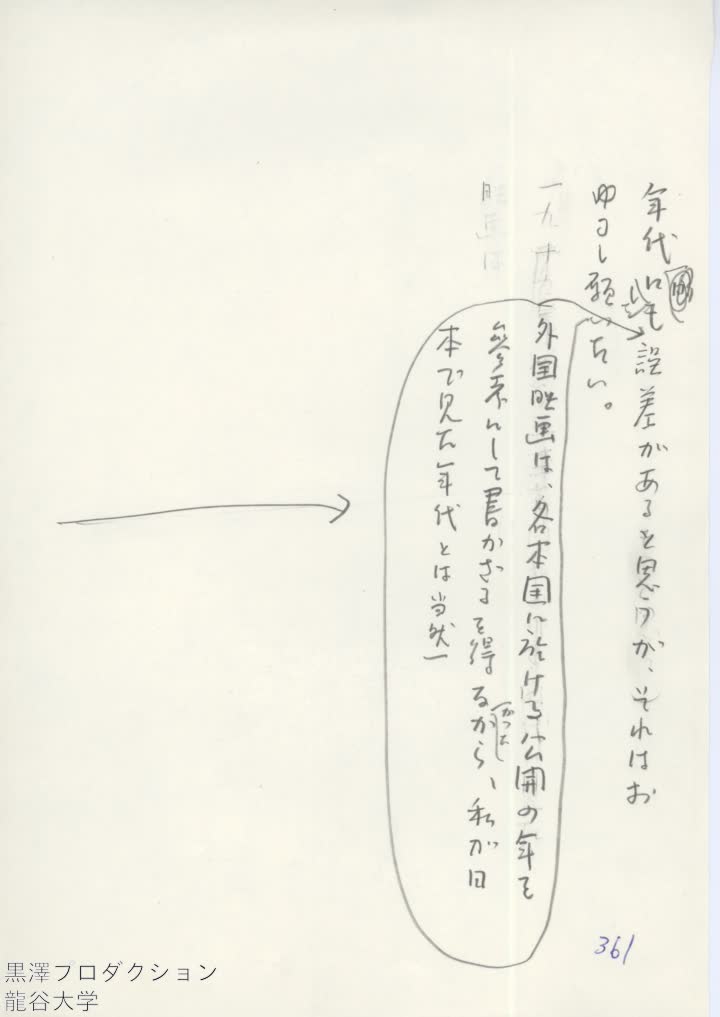 年代にも誤差があると思うが、それはお
ゆるし願いたい。
外国映画は、各本国に於ける公開の年を
参考にして書かざるを得
なかつた
から、私が日
本で見た年代とは当然一
一九
映画は
361
黒澤プロダクション
龍谷大学